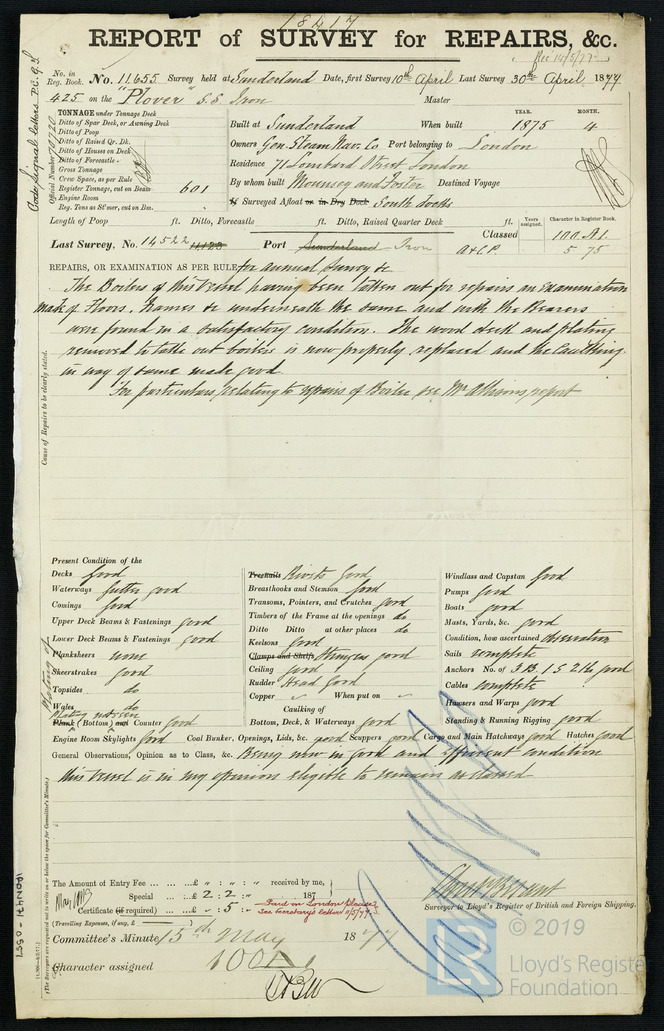 18417
REPORT of SURVEY for REPAIRS, &c.
Rec 14/5/77
No. in Reg. Book. No. 11.655 Survey held at Sunderland Date, first Survey 10th April Last Survey 30th April 1877
425 on the "Plover" S.S. Iron Master
TONNAGE under Tonnage Deck
Ditto of Spar Deck, or Awning Deck
Ditto of Poop
Ditto of Raised Qr. Dk.
Ditto of Houses on Deck
Ditto of Forecastle
Gross Tonnage
Crew Space, as per Rule
Register Tonnage, cut on Beam 601
Engine Room
Reg. Tons as St'mer, cut on Bm.
Official Number
Code Signal letters P.C.G.S
Built at Sunderland When built YEAR. 1875 MONTH. 4
Owners Gen. Steam Nav. Co Port belonging to London
Residence 71 Lombard Street London
By whom built Mounsey and Foster Destined Voyage
If Surveyed Afloat or in Dry Dock South Docks
Length of Poop ft. Ditto, Forecastle ft. Ditto, Raised Quarter Deck ft. Years assigned. Character in Register Book.
Last Survey, No. 14522 Port Sunderland Iron Classed 100 A1.
A&CP. 5 75
REPAIRS, OR EXAMINATION AS PER RULE for annual Survey &c
The Boilers of this Vessel having been taken out for repairs an examination
made of Floors, Frames &c underneath the same and with the Bearers
were found in a satisfactory condition. The wood deck and plating
removed to take out boilers is now properly replaced and the Caulking
in way of same made good.
For particulars relating to repairs of Boiler see Mr Allisons report
Cause of Repairs to be clearly stated.
Present Condition of the
Decks good
Waterways gutter good
Comings good
Upper Deck Beams & Fastenings good
Lower Deck Beams & Fastenings good
Planksheers none
Sheerstrakes good
Topsides do
Wales do
Plating of
Plating not seen
Plank (Bottom) and Counter good
Engine Room Skylights good Coal Bunker, Openings, Lids, &c. good Scuppers good Cargo and Main Hatchways good Hatches good
Treenails Rivets Good
Breasthooks and Stemson good
Transoms, Pointers, and Crutches good
Timbers of the Frame at the openings do
Ditto Ditto at other places do
Keelsons good
Clamps and Shelfs Stringers good
Ceiling good
Rudder Head Good
Copper When put on
Caulking of
Bottom, Deck, & Waterways good
Windlass and Capstan good
Pumps good
Boats good
Masts, Yards, &c. good
Condition, how ascertained Observation
Sails complete
Anchors No. of 3 B. 1 S 2 K good
Cables complete
Hawsers and Warps good
Standing & Running Rigging good
General Observations, Opinion as to Class, &c. Being now in Good and efficient condition
this vessel is in my opinion eligible to remain as classed
The Amount of Entry Fee ... ... £ " : " : " received by me,
Special ... £ 2 : 2 : " 187
Certificate (if required) ... £ " : 5 : "
(Travelling Expenses, if any, £ )
Paid in London
See Secretary's letter 11/5/77
Surveyor to Lloyd's Register of British and Foreign Shipping.
Committee's Minute 15th May 1877
Character assigned 100 A1
IRON471-0357
© 2019
Lloyd's Register
Foundation